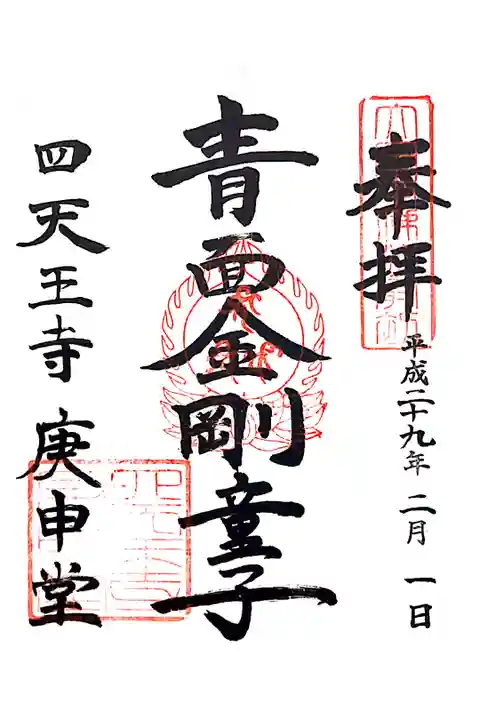 奉拝
平成二十九年 二月 一日
青面金剛童子
四天王寺 庚申堂